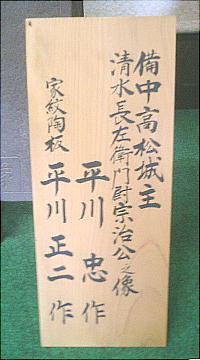 備中高松城主
清水長左衛門尉宗治公之像
平川忠作
家紋陶板 平川正二作